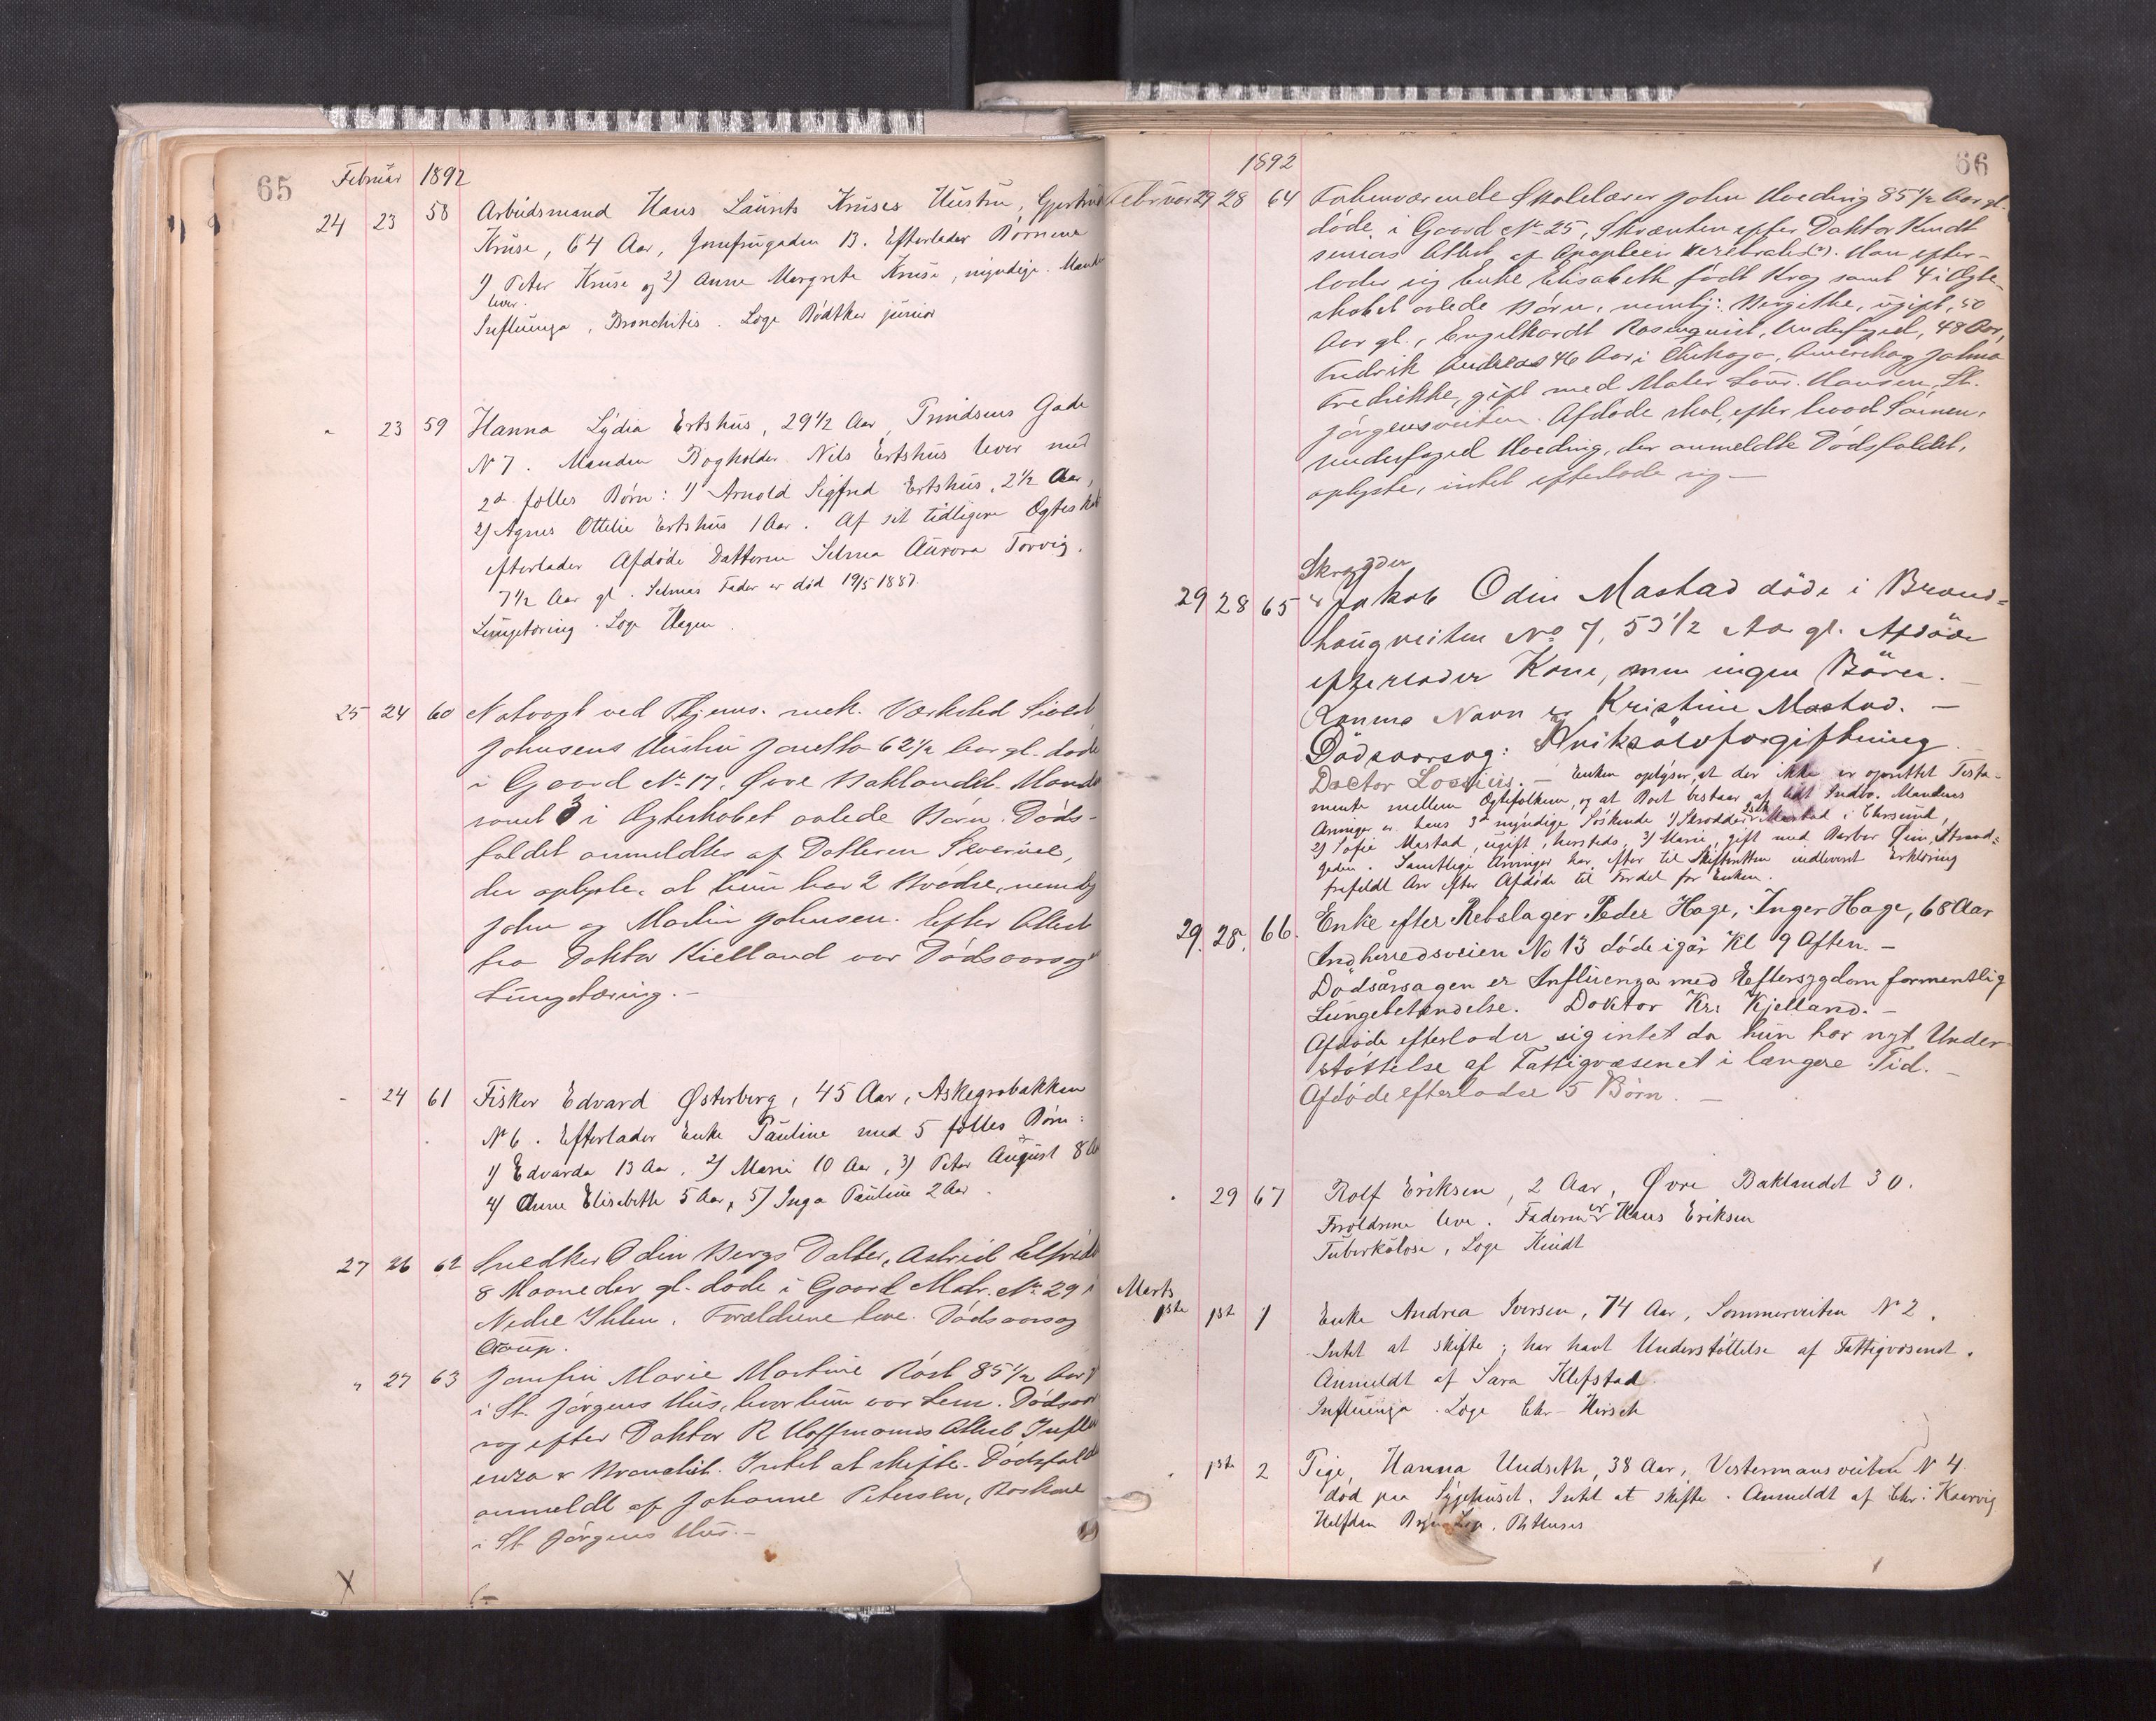 65
Februar 1892
24 23 58 Arbeidsmand Hans Laurits Kruses Hustru, Gjertrud
Kruse, 64 Aar, Jomfrugaden 13. Efterlader Børnene
1) Peter Kruse og 2) Anne Margrete Kruse, myndige. Manden
lever.
Influenza, Bronchitis. Læge Bødtker junior
" 23 59 Hanna Lydia Ertshus, 29 1/2 Aar, Gade
N 7. Manden Bogholder Nils Ertshus lever med
2de fælles Børn: 1) Arnold Sigfred Ertshus, 2 1/2 Aar,
2) Agnes Ottilie Ertshus 1 Aar. Af sit tidligere Ægteskab
efterlader Afdøde Datteren Selma Aurora Torvig,
7 1/2 Aar gl. Selmas Fader er død 19/5 1887.
Lungetæring. Læge Hagen
25 24 60 Natvagt ved Thjems. mek. Værksted Sivert
Johnsens Hustru Jonetta 62 1/2 Aar gl. døde
i Gaard No 17, Øvre Baklandet. Manden
samt 3 i Ægteskabet avlede Børn. Døds-
faldet anmeldtes af Datteren
der oplyste, at hun har 2 Brødre, nemlig
John og Martin Johnsen. Efter Attest
fra Doktor Kielland var Dødsaarsag
Lungetæring. -
- 24 61 Fisker Edvard Østerberg, 45 Aar, Askegrobakken
No 6. Efterlader Enke Pauline med 5 fælles Børn:
1) Edvarda 13 Aar, 2) Marie 10 Aar, 3) Peter August 8 Aar
4) Anne Elisabeth 5 Aar, 5) Inga Pauline 2 Aar.
27 26 62 Snedker Odin Bergs Datter, Astrid Elfride
8 Maaneder gl. døde i Gaard Matr. No 29 i
Nedre Ihlen. Forældrene leve. Dødsaarsag
Croup.
" 27 63 Jomfru Marie Martine Røst 85 1/2 Aar gl
i St. Jørgens Hus, hvor hun var Lem. Dødsaar
sag efter Doktor R Hoffmanns Attest Influ
enza & Bronchit. Intet at skifte. Dødsfaldet
anmeldt af Johanne Petersen,
i St. Jørgens Hus. -
X
66
1892
Februar 29 28 64 Forhenværende Skolelærer John Hveding 85 1/2 Aar gl.
døde i Gaard No 25, Skrænten efter Doktor Kindt
seniors Attest af Apoplexi cerebralis (?). Han efter-
lader sig Enke Elisabeth født Krog samt 4 i Ægte-
skabet avlede Børn, nemlig: Bergithe, ugift, 50
Aar gl., Engelhardt Rosenqvist, Underfoged, 48 Aar,
Fredrik Andreas 46 Aar i Chikago, Amerika og Jahna
Fredrikke, gift med Maler Laur. Hansen, St.
Jørgensveiten. Afdøde skal, efter hvad Sønnen,
Underfoged Hveding, der anmeldte Dødsfaldet,
oplyste, intet efterlade sig -
Skrædder
29 28 65 Jakob Odin Mastad døde i Brand=
haugveiten No 7, 53 1/2 Aar gl. Afdøde
efterlader Kone, men ingen Børn. -
Konens Navn er Kristine Mastad. -
Dødsaarsag: Kviksølvforgiftning
Doctor Lossius. - Enken oplyser, at der ikke er oprettet Testa-
mente mellem Ægtefolkene, og at Boet bestaar af lidt Indbo. Mandens
Arvinger er hans 3de myndige Søskende 1) Skrædder Mastad i Ekersund,
2) Sofie Mastad, ugift, hersteds, 3) Marie, gift med Barber Øien, Strand=
gaden. Samtlige Arvinger har efter til Skifteretten indleveret Erklæring
frafaldt Arv efter Afdøde til Fordel for Enken.
29. 28. 66. Enke efter Rebslager Peder Hage, Inger Hage, 68 Aar
Indherredsveien No 13 døde igår Kl 9 Aften. -
Dødsårsagen er Influenza med Eftersygdom formentlig
Lungebetændelse. Doktor Kr. Kjelland. -
Afdøde efterlader sig intet da hun har nyt Under-
støttelse af Fattigvæsenet i længere Tid. -
Afdøde efterlader 5 Børn. -
" 29 67 Rolf Eriksen, 2 Aar, Øvre Baklandet 30.
Forældrene leve. Faderen er Hans Eriksen
Tuberkulose, Læge Kindt
Marts
1ste 1ste 1 Enke Andrea Iversen, 74 Aar, Sommerveiten No 2.
Intet at skifte; har havt Understøttelse af Fattigvæsenet.
Anmeldt af Sara Klefstad.
Influenza. Læge Chr. Hirsch
" 1ste 2 Pige, Hanna Undseth, 38 Aar, Vestermansveiten No 4
død paa Sygehuset. Intet at skifte. Anmeldt af Chr. Kaarvig
Halfdan